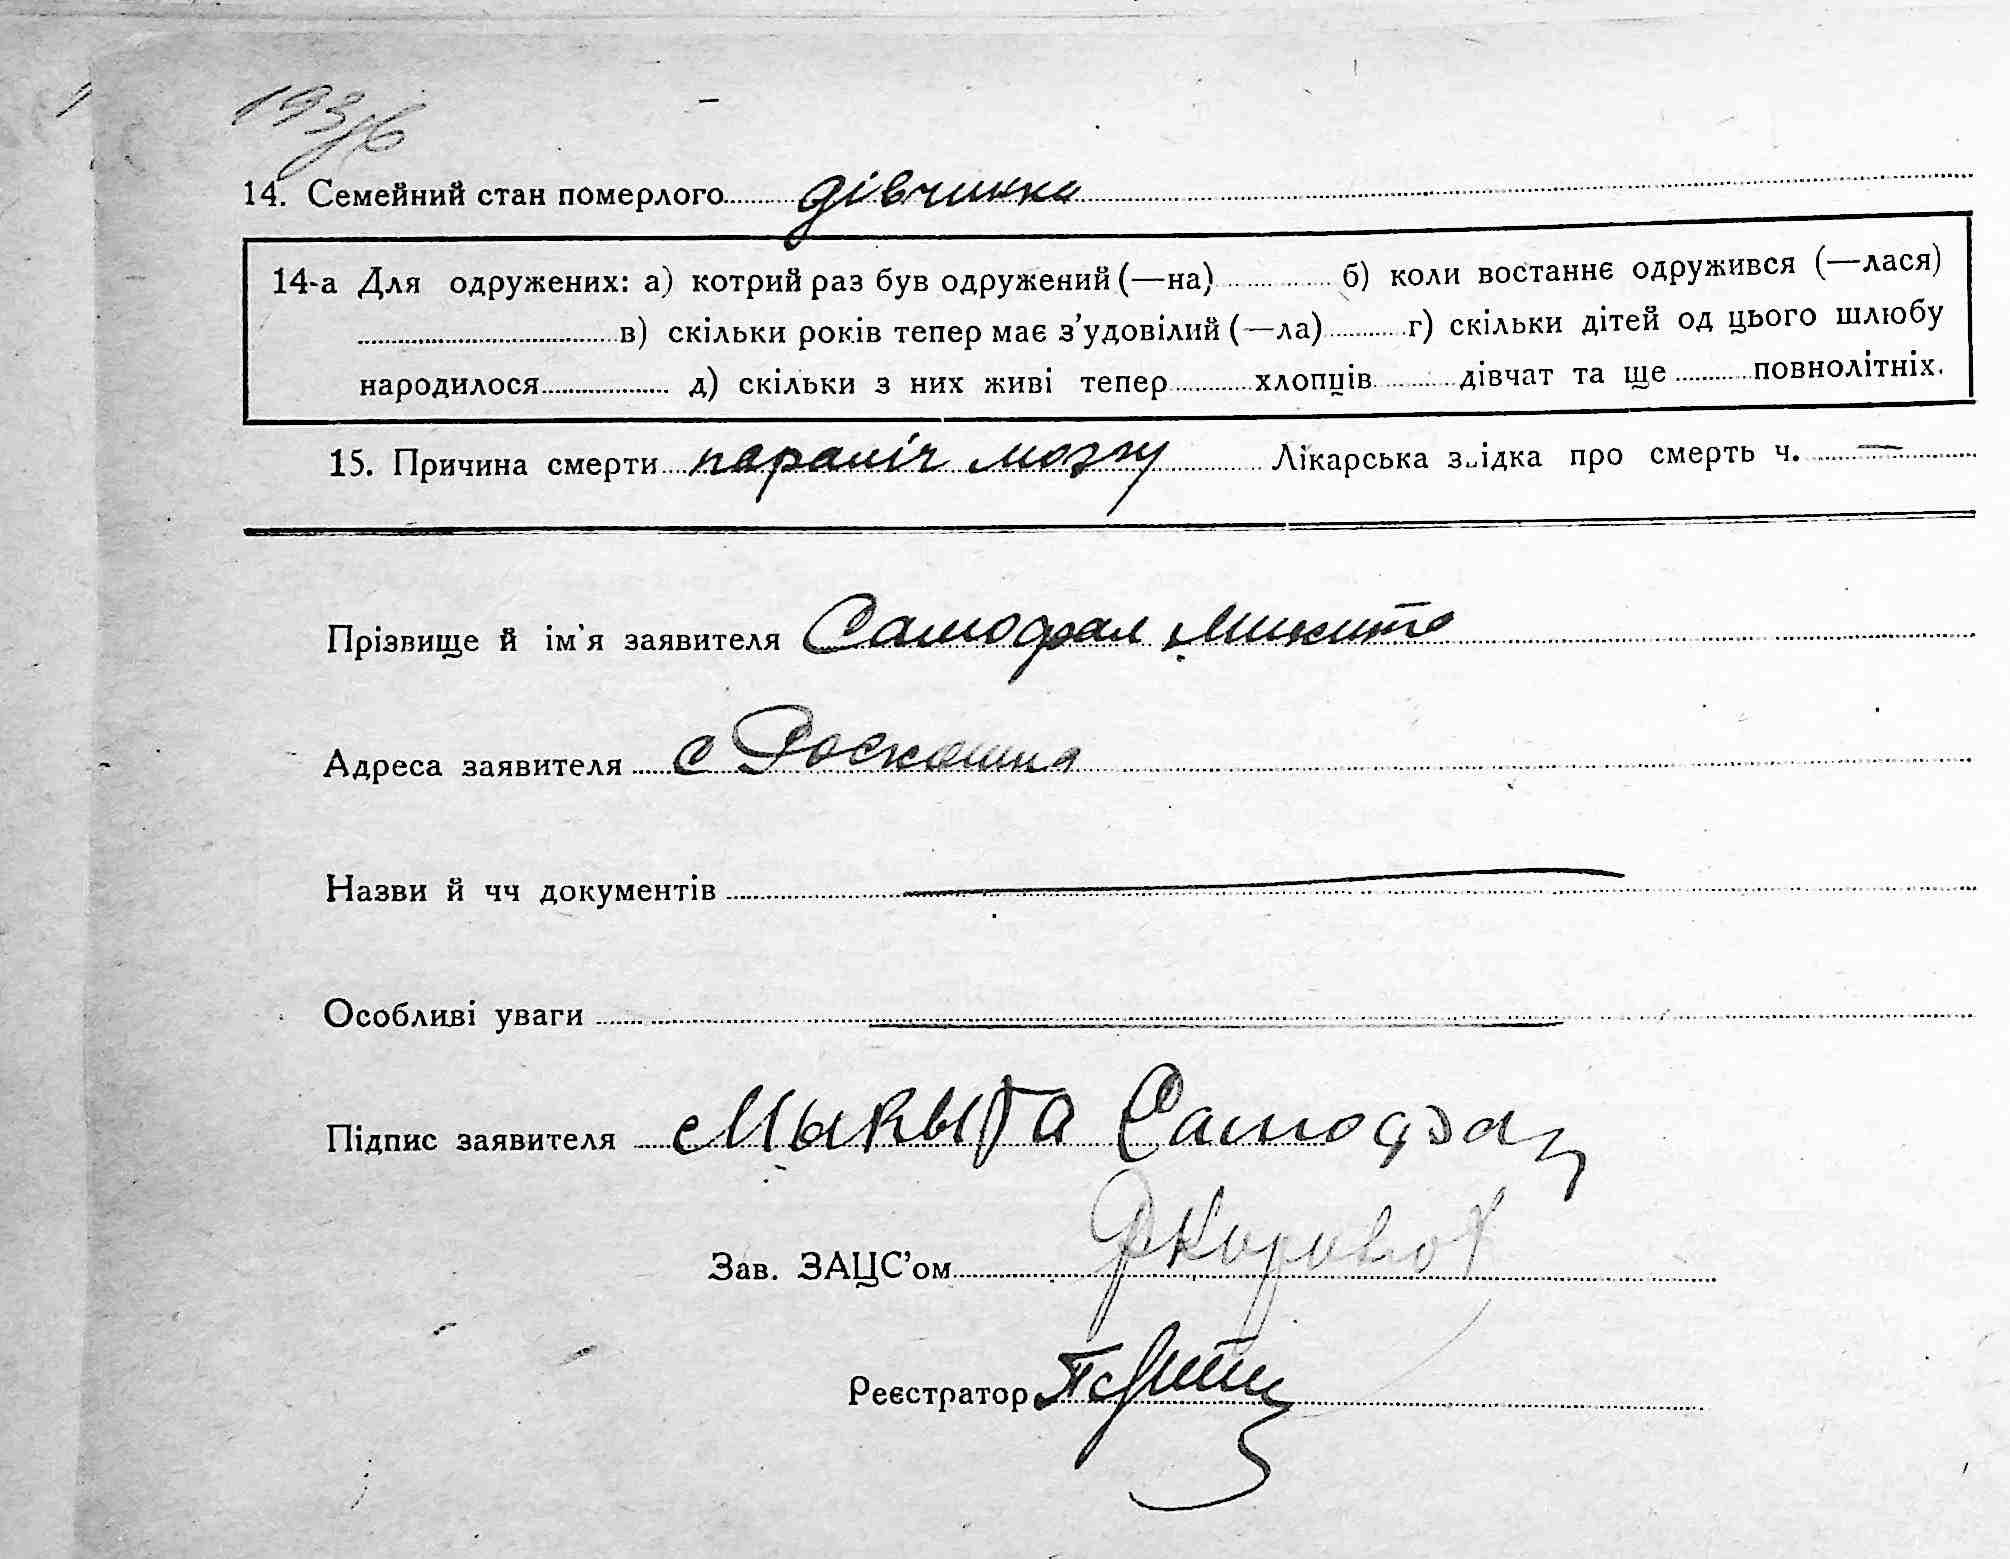 193зв
14. Семейний стан померлого дівчинка
14-а Для одружених: а) котрий раз був одружений (—на) б) коли востаннє одружився (—лася)
в) скільки років тепер має з’удовілий (—ла) г) скільки дітей од цього шлюбу
народилося д) скільки з них живі тепер хлопців дівчат та ще повнолітніх.
15. Причина смерти параліч мозгу Лікарська звідка про смерть ч. —
Прізвище й ім'я заявителя Самофал Микита
Адреса заявителя с Роскошна
Назви й чч документів
Особливі уваги
Підпис заявителя Мыкыта
Зав. ЗАЦС’ом
Реєстратор